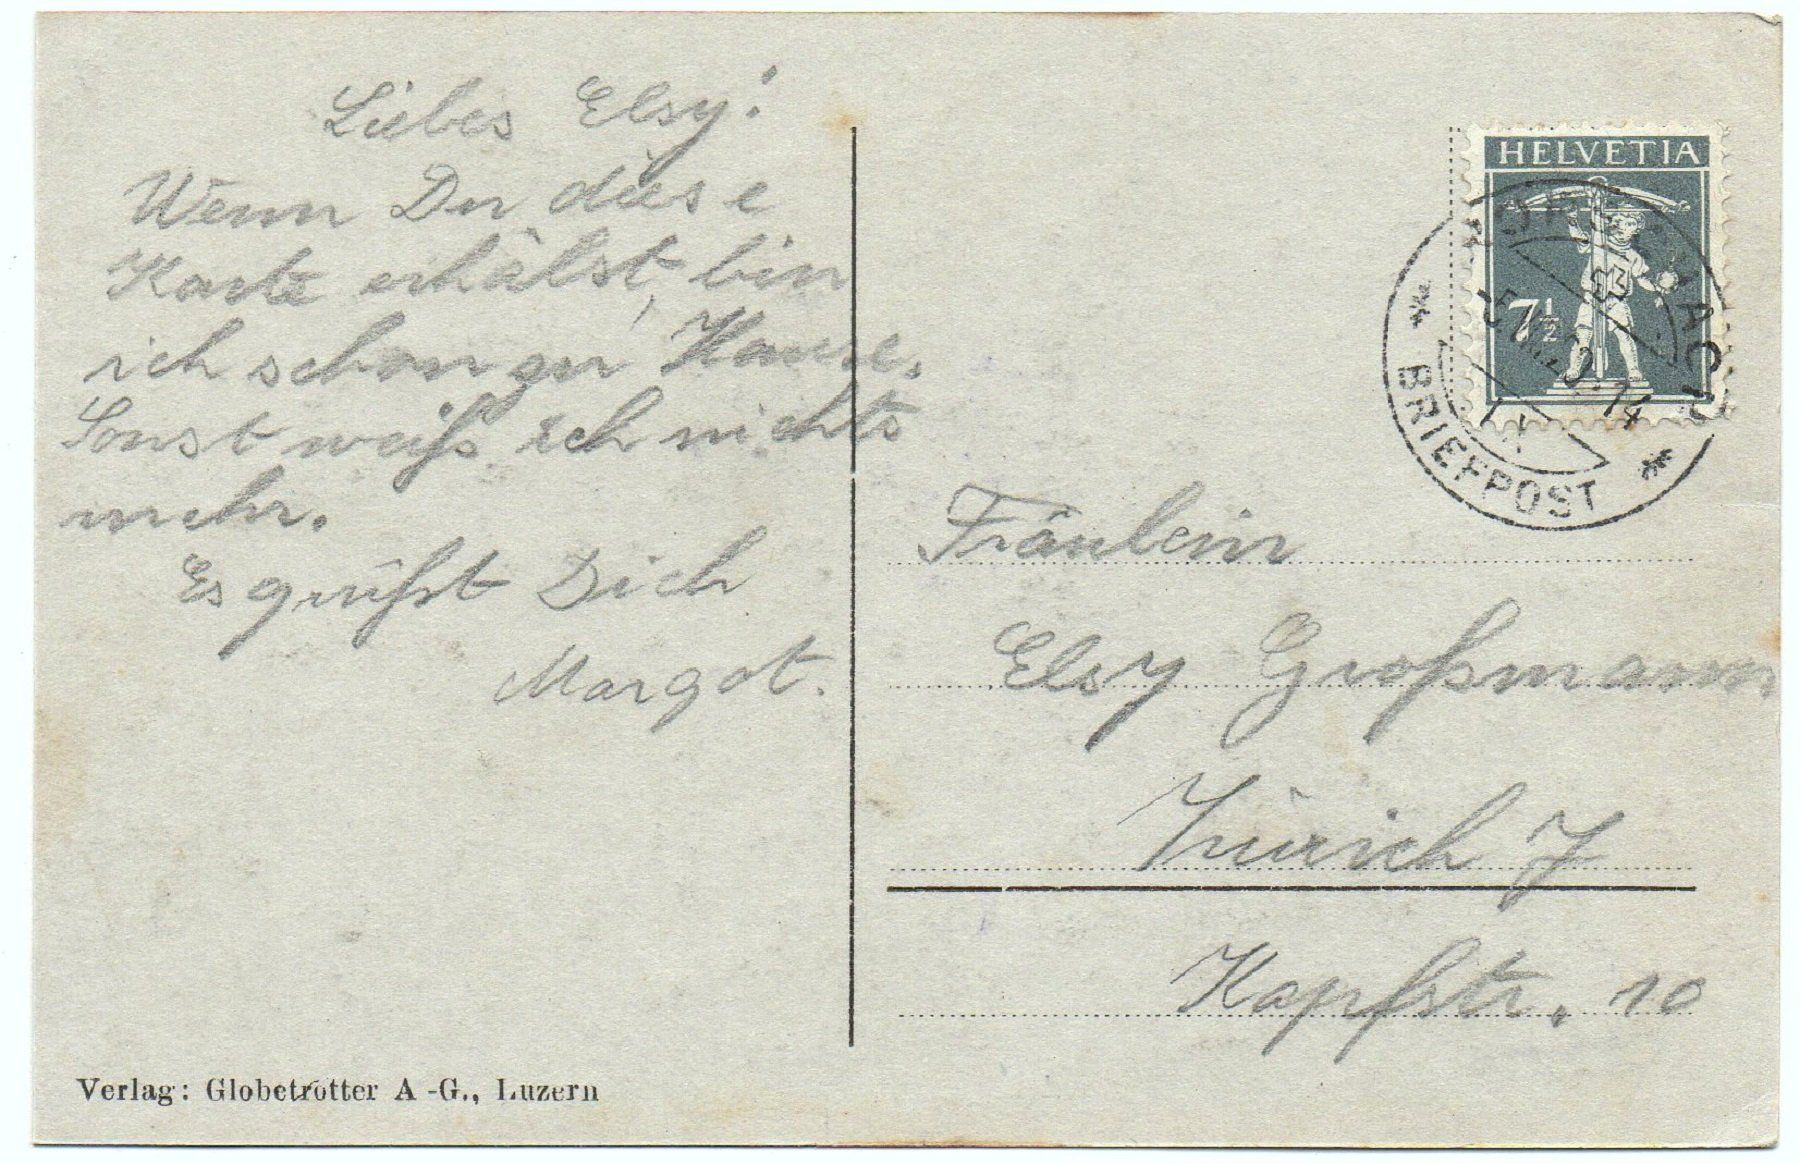 Liebes Elsy!
Wenn Du diese
Karte erhälst, bin
ich schon zu Hause.
Sonst weiß ich nichts
mehr.
Es grüßt Dich
Margot.
Verlag: Globetrotter A.-G., Luzern
HELVETIA
7½
BRIEFPOST
Fräulein
Elsy Großmann
Zürich 7
Kapfstr. 10